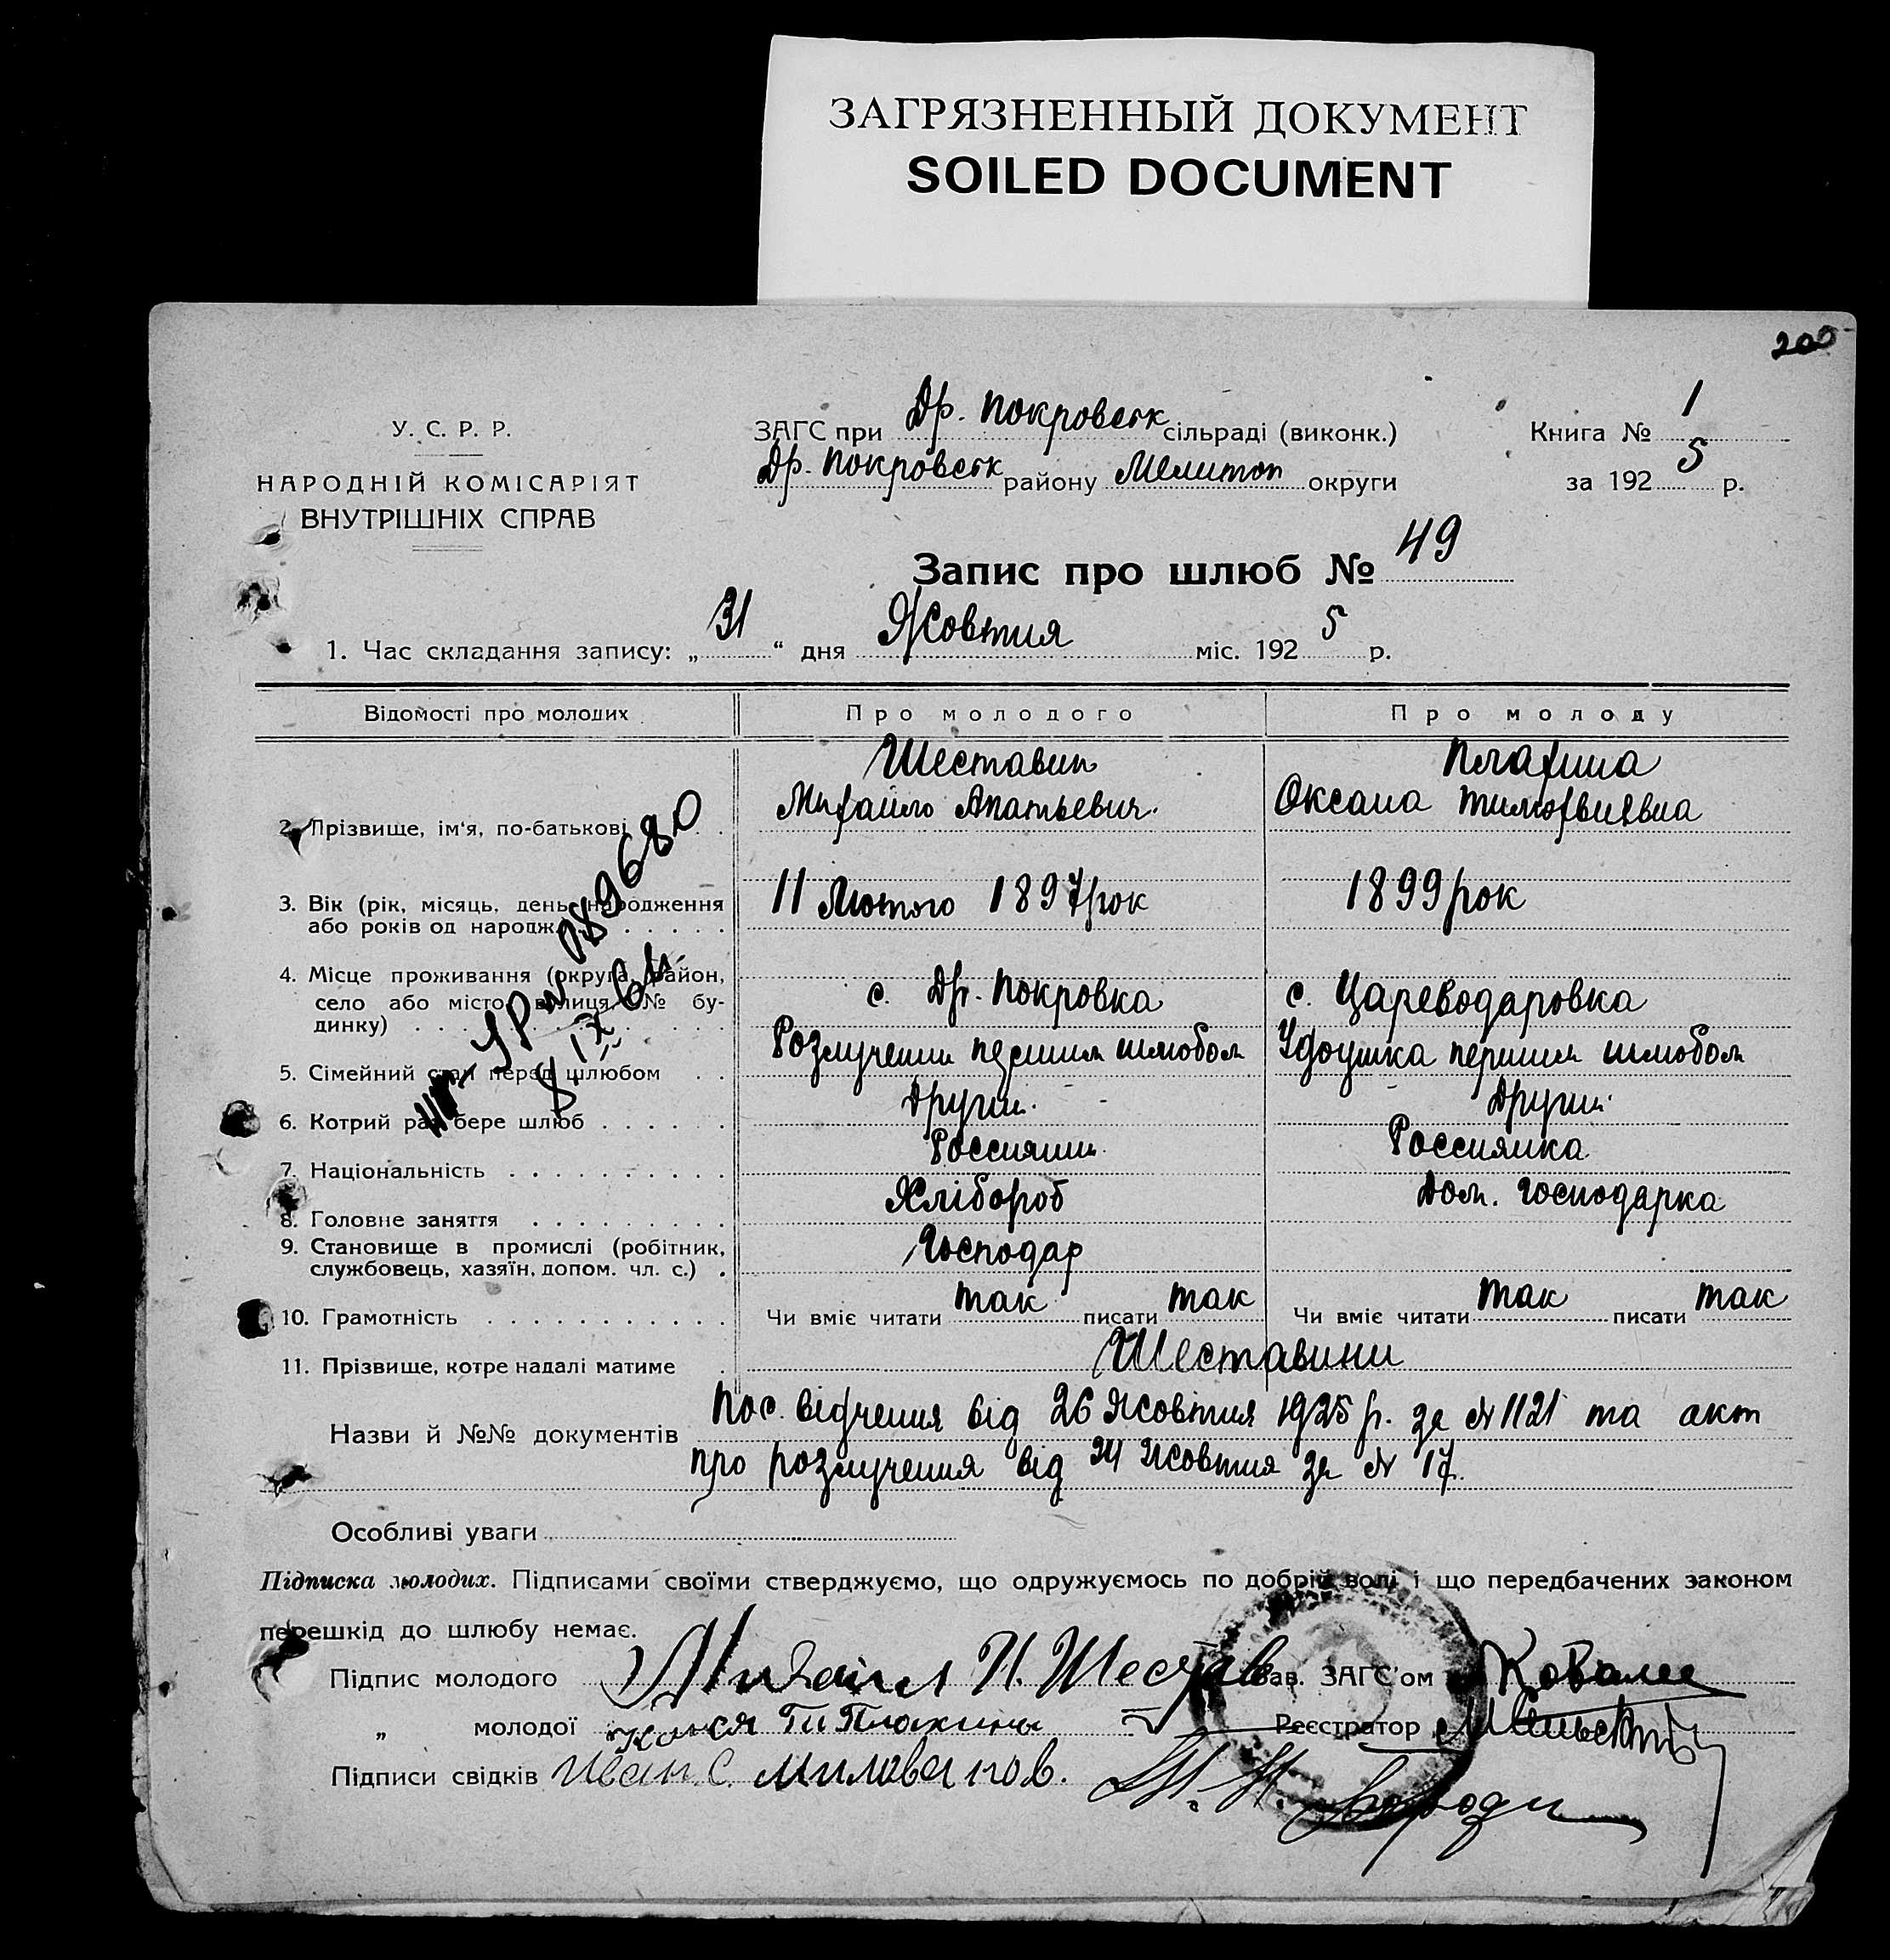 ЗАГРЯЗНЕННЫЙ ДОКУМЕНТ
SOILED DOCUMENT
200
У. С. Р. Р.
НАРОДНІЙ КОМІСАРІЯТ
ВНУТРІШНІХ СПРАВ
ЗАГС при Др. Покровськ сільраді (виконк.)
Др. Покровськ району Мелитоп округи
Книга № 1
за 192 5 р.
Запис про шлюб № 49
1. Час складання запису: „ 31 “ дня Жовтня міс. 192 5 р.
Відомості про молодих Про молодого Про молоду
Шеставин Плахина
2. Прізвище, ім'я, по-батькові Михайло Апатьевич. Оксана Тимофвиевна
3. Вік (рік, місяць, день народження 11 Лютого 1897 рок 1899 рок
або років од народж.
4. Місце проживання (округа, район,
село або місто, вулиця, № бу- с. Др. Покровка с. Цареводаровка
динку)
5. Сімейний стан перед шлюбом Розлучении першим шлюбом Удоушка першим шлюбом
6. Котрий раз бере шлюб Други. Други.
7. Національність Россиянин Россиянка
8. Головне заняття Хлібороб Дом. Господарка
9. Становище в промислі (робітник, Господар
службовець, хазяїн, допом. чл. с.)
10. Грамотність Чи вміє читати так писати так Чи вміє читати так писати так
11. Прізвище, котре надалі матиме Шеставини
Назви й №№ документів Посвідчення від 26 Жовтня 1925 р. за № 1121 та акт
про розлучення від 24 Жовтня за № 17.
089680
Особливі уваги
Підписка молодих. Підписами своїми стверджуємо, що одружуємось по добрій волі і що передбачених законом
перешкід до шлюбу немає.
Підпис молодого Михаил И. Шестав Зав. ЗАГС'ом
„ молодої Плахина Реєстратор
Підписи свідків Иван С. Милованов.